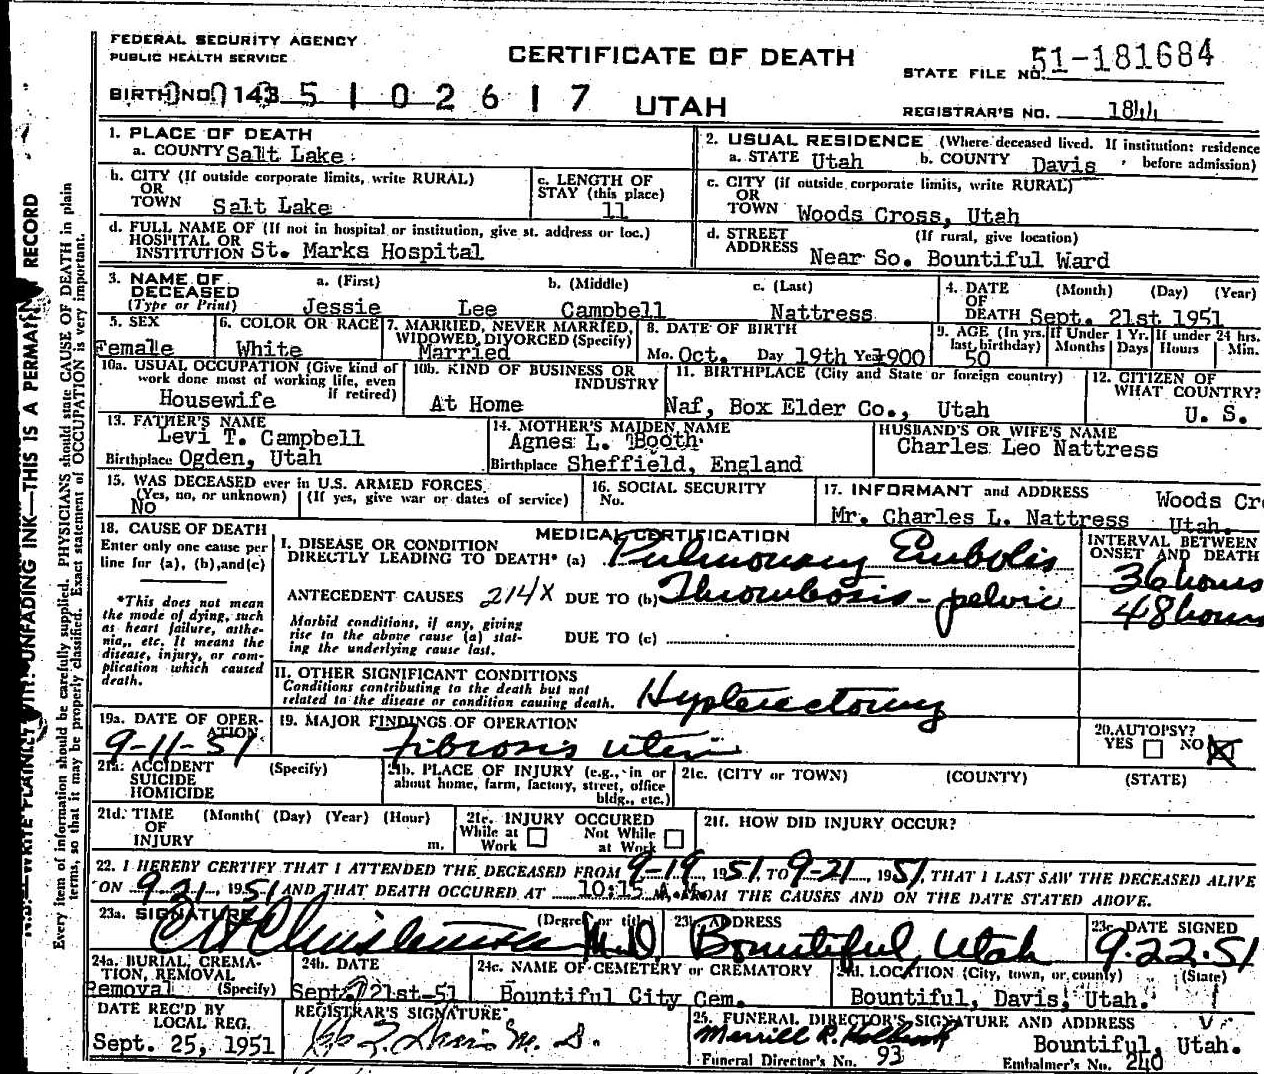 FEDERAL SECURITY AGENCY
PUBLIC HEALTH SERVICE
CERTIFICATE OF DEATH
STATE FILE NO. 51-181684
BIRTH NO. 143 5 1 0 2 6 1 7
UTAH
REGISTRAR'S NO. 1844
1. PLACE OF DEATH
a. COUNTY Salt Lake
2. USUAL RESIDENCE (Where deceased lived. If institution: residence before admission)
a. STATE Utah b. COUNTY Davis
b. CITY (If outside corporate limits, write RURAL)
OR
TOWN Salt Lake
c. LENGTH OF
STAY (this place)
11
c. CITY (if outside corporate limits, write RURAL)
OR
TOWN Woods Cross, Utah
d. FULL NAME OF (If not in hospital or institution, give st. address or loc.)
HOSPITAL OR
INSTITUTION St. Marks Hospital
d. STREET (If rural, give location)
ADDRESS Near So. Bountiful Ward
3. NAME OF DECEASED (Type or Print)
a. (First) b. (Middle) c. (Last)
Jessie Lee Campbell Nattress
4. DATE OF DEATH (Month) (Day) (Year)
Sept. 21st 1951
5. SEX
Female
6. COLOR OR RACE
White
7. MARRIED, NEVER MARRIED,
WIDOWED, DIVORCED (Specify)
Married
8. DATE OF BIRTH
Mo. Oct. Day 19th Yr. 1900
9. AGE (In yrs. last birthday)
50
If Under 1 Yr. Months Days
If under 24 hrs. Hours Min.
10a. USUAL OCCUPATION (Give kind of
work done most of working life, even
if retired)
Housewife
10b. KIND OF BUSINESS OR
INDUSTRY
At Home
11. BIRTHPLACE (City and State or foreign country)
Naf, Box Elder Co., Utah
12. CITIZEN OF
WHAT COUNTRY?
U. S.
13. FATHER'S NAME
Levi T. Campbell
Birthplace Ogden, Utah
14. MOTHER'S MAIDEN NAME
Agnes L. Booth
Birthplace Sheffield, England
HUSBAND'S OR WIFE'S NAME
Charles Leo Nattress
15. WAS DECEASED ever in U.S. ARMED FORCES
(Yes, no, or unknown) (If yes, give war or dates of service)
No
16. SOCIAL SECURITY
No.
17. INFORMANT and ADDRESS Woods Cro
Mr. Charles L. Nattress Utah.
18. CAUSE OF DEATH
Enter only one cause per
line for (a), (b), and (c)
*This does not mean
the mode of dying, such
as heart failure, asthe-
nia, etc. It means the
disease, injury, or com-
plication which caused
death.
MEDICAL CERTIFICATION
I. DISEASE OR CONDITION
DIRECTLY LEADING TO DEATH* (a) Pulmonary Embolis
INTERVAL BETWEEN
ONSET AND DEATH
36 hours
ANTECEDENT CAUSES 214X DUE TO (b) Thrombosis - pelvic
48 hours
Morbid conditions, if any, giving
rise to the above cause (a) stat-
ing the underlying cause last.
DUE TO (c)
II. OTHER SIGNIFICANT CONDITIONS
Conditions contributing to the death but not
related to the disease or condition causing death.
Hysterectomy
19a. DATE OF OPER-
ATION
9-11-51
19. MAJOR FINDINGS OF OPERATION
Fibrosis uteri
20. AUTOPSY?
YES NO X
21a. ACCIDENT (Specify)
SUICIDE
HOMICIDE
21b. PLACE OF INJURY (e.g., in or
about home, farm, factory, street, office
bldg., etc.)
21c. (CITY or TOWN) (COUNTY) (STATE)
21d. TIME (Month( (Day) (Year) (Hour)
OF
INJURY m.
21e. INJURY OCCURED
While at Work Not While at Work
21f. HOW DID INJURY OCCUR?
22. I HEREBY CERTIFY THAT I ATTENDED THE DECEASED FROM 9-19, 1951, TO 9-21, 1951, THAT I LAST SAW THE DECEASED ALIVE
ON 9 21, 1951 AND THAT DEATH OCCURED AT 10:15 A.M. FROM THE CAUSES AND ON THE DATE STATED ABOVE.
23a. SIGNATURE (Degree or title)
M.D.
23b. ADDRESS
Bountiful, Utah
23c. DATE SIGNED
9.22.51
24a. BURIAL, CREMA-
TION, REMOVAL
(Specify)
Removal
24b. DATE
Sept. 21st-51
24c. NAME OF CEMETERY or CREMATORY
Bountiful City Cem.
24d. LOCATION (City, town, or county) (State)
Bountiful, Davis, Utah.
DATE REC'D BY
LOCAL REG.
Sept. 25, 1951
REGISTRAR'S SIGNATURE
25. FUNERAL DIRECTOR'S SIGNATURE AND ADDRESS
Merrill R. Holbrook
Bountiful, Utah.
Funeral Director's No. 93 Embalmer's No. 240
WRITE PLAINLY WITH UNFADING INK—THIS IS A PERMANENT RECORD
Every item of information should be carefully supplied. PHYSICIANS should state CAUSE OF DEATH in plain
terms, so that it may be properly classified. Exact statement of OCCUPATION is very important.